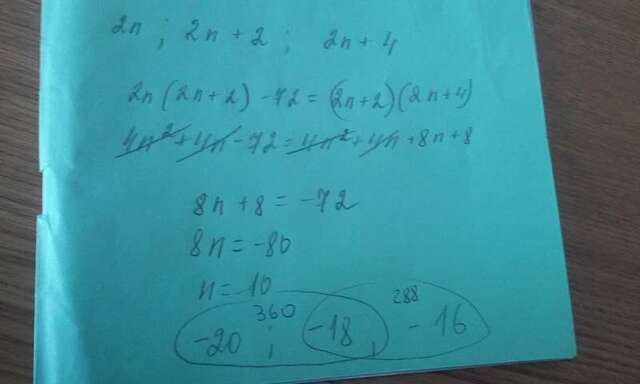 2n ; 2n + 2 ; 2n + 4
2n (2n + 2) - 72 = (2n + 2)(2n + 4)
4n² + 4n - 72 = 4n² + 4n + 8n + 8
8n + 8 = -72
8n = -80
n = -10
360 288
-20 ; -18 , -16